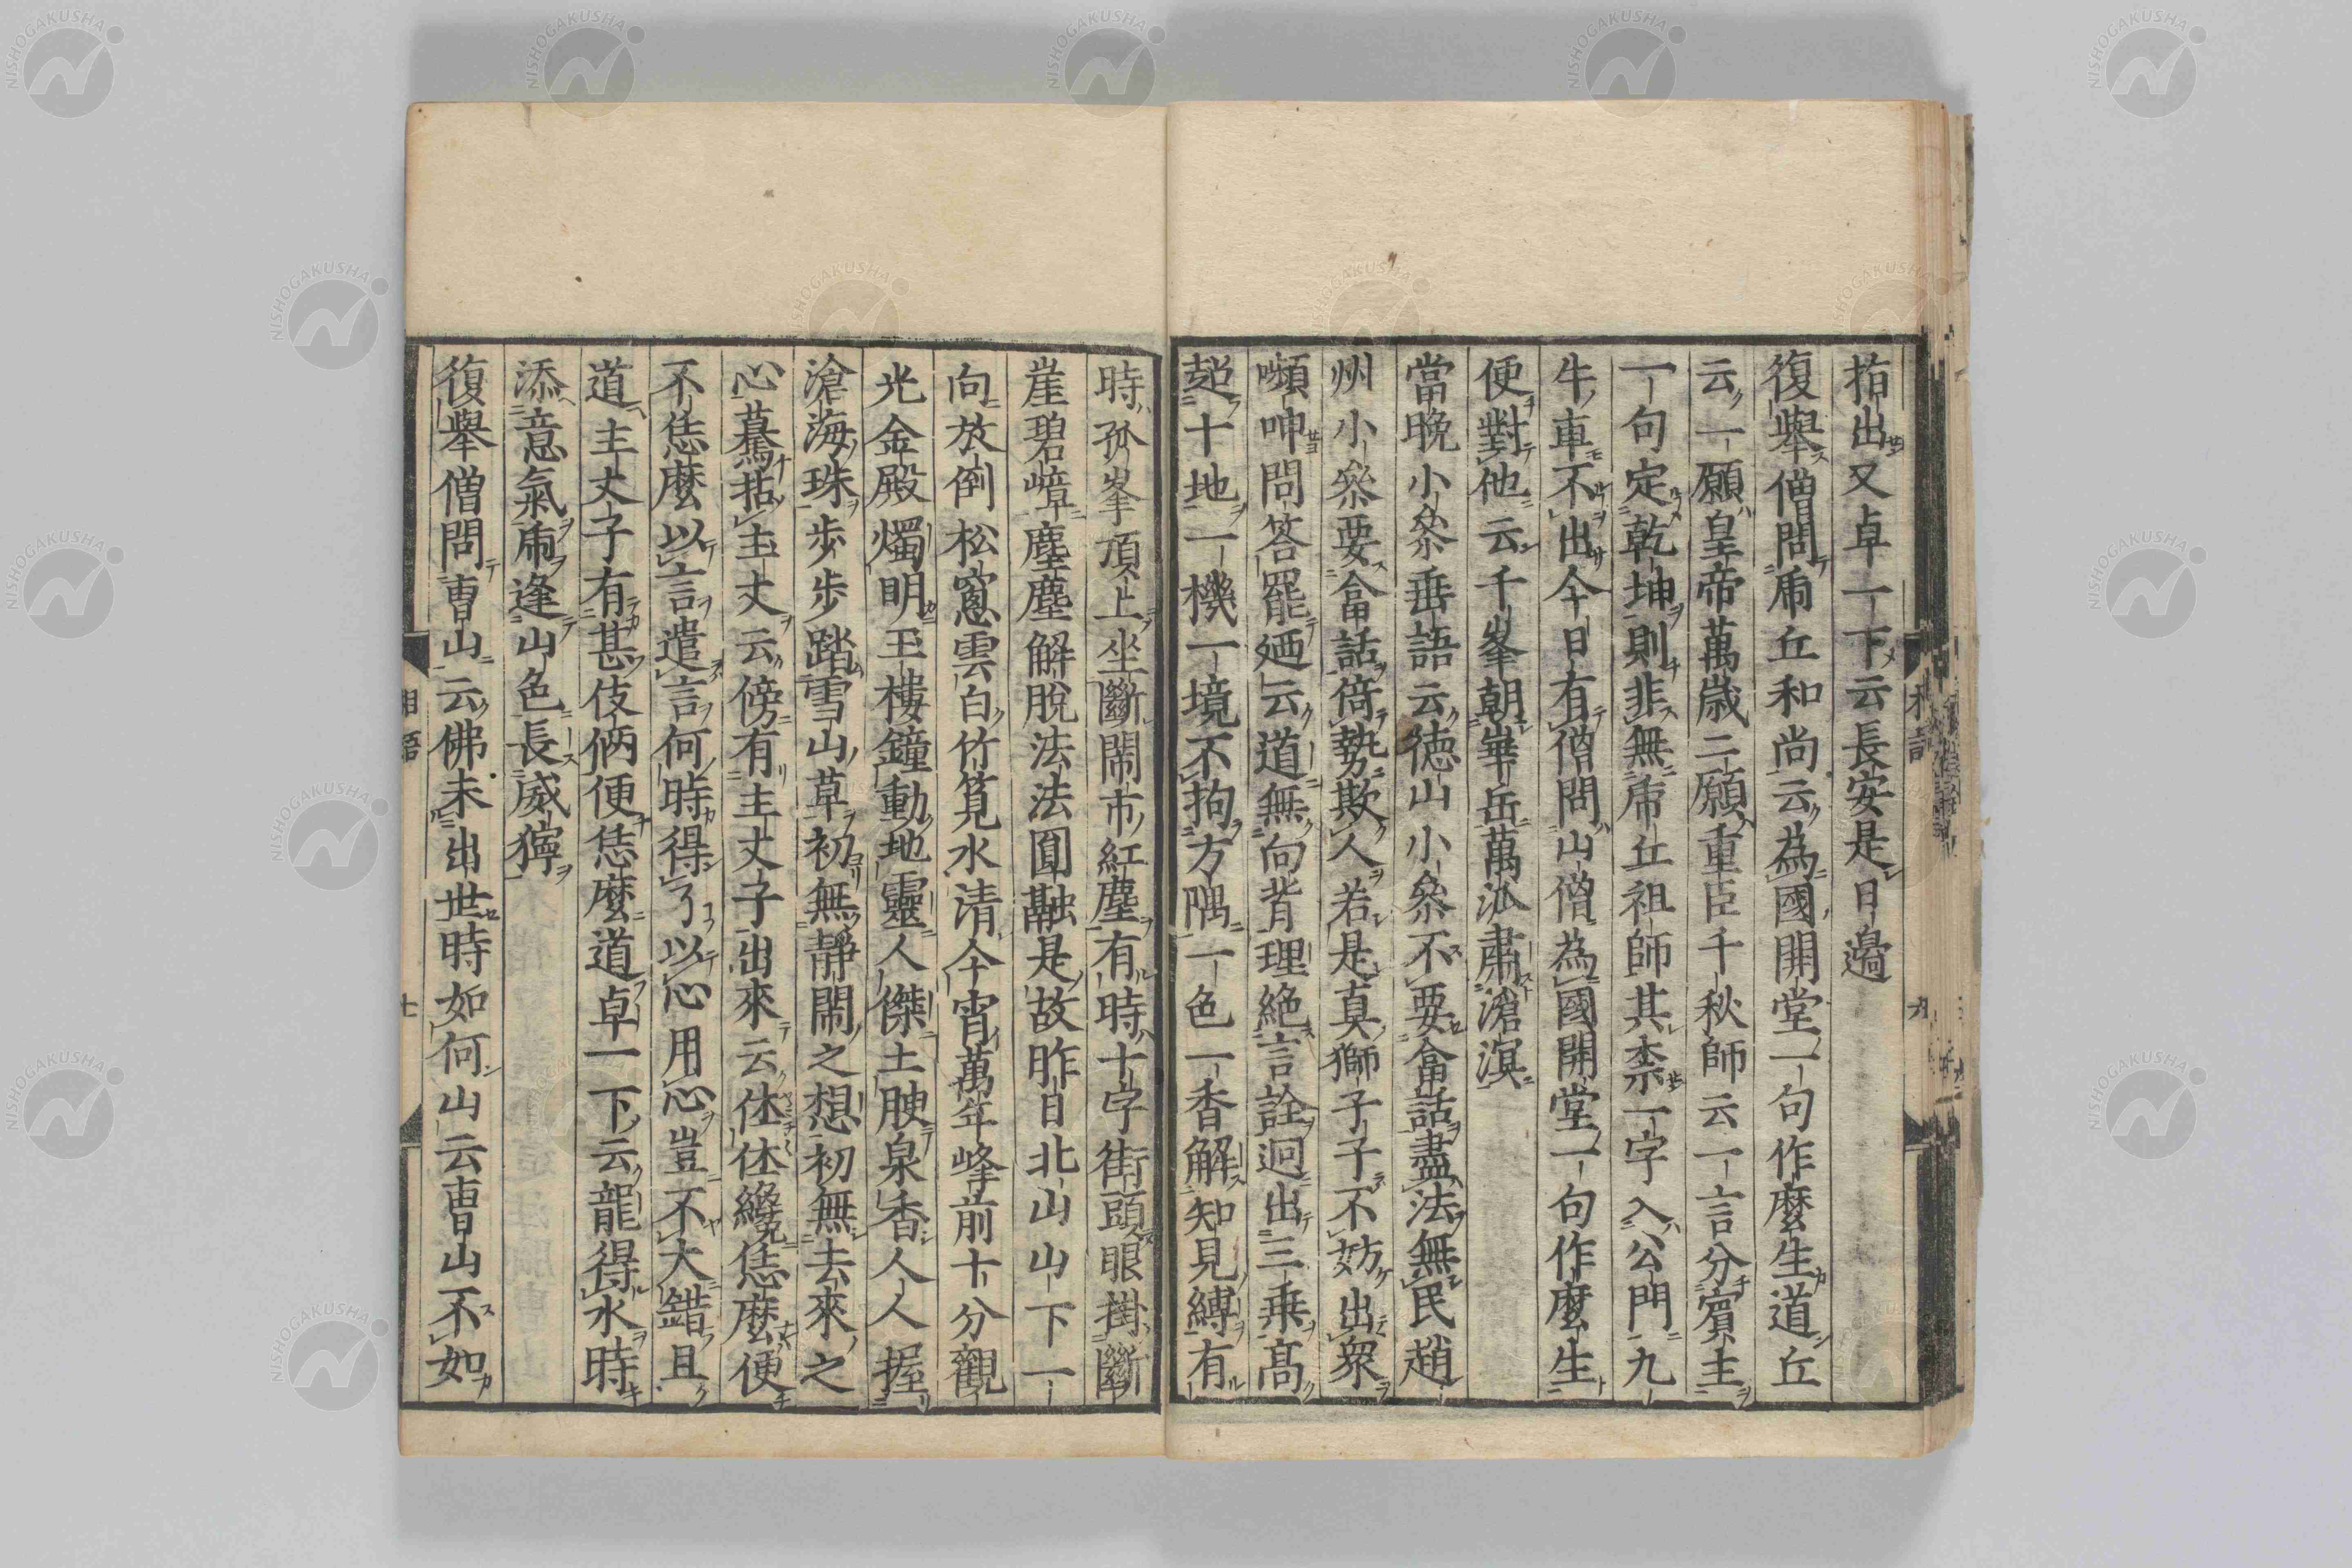 指出又卓一下云長安是日邊
復舉僧問虎丘和尚云為國開堂一句作麼生道丘
云一願皇帝萬歲二願重臣千秋師云一言分賓主
一句定乾坤則非無虎丘祖師其柰一字入公門九
牛車不出今日有僧問山僧為國開堂一句作麼生
便對他云千峯朝華岳萬泒肅滄溟
當晚小參垂語云德山小參不要畣話盡法無民趙
州小參要畣話倚勢欺人若是真獅子子不妨出衆
嚬呻問答罷廼云道無向背理絕言詮迥出三乘高
超十地一機一境不拘方隅一色一香解知見縛有
時孤峯頂上坐斷鬧市紅塵有時十字街頭眼掛斷
崖碧嶂塵塵解脫法法圓融是故昨日北山山下一
向放倒松窻雲白竹筧水清今宵萬年峰前十分觀
光金殿燭明玉樓鐘動地靈人傑土腴泉香人人握
滄海珠步步踏雪山草初無靜閙之想初無去來之
心驀拈主丈云傍有主丈子出來云休休纔恁麼便
不恁麼以言遣言何時得了以心用心豈不大錯且
道主丈子有甚伎倆便恁麼道卓一下云龍得水時
添意氣虎逢山色長威獰
復舉僧問曹山云佛未出世時如何山云曹山不如
NISHOGAKUSHA